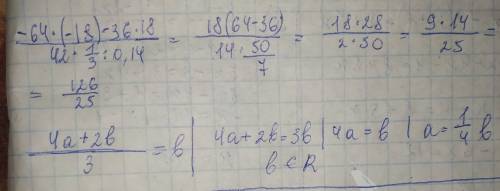 -64·(-18)-36·18 / 42·1/3:0,14 = 18(64-36) / 14·50/7 = 18·28 / 2·50 = 9·14 / 25 =
= 126/25
4a+2b / 3 = b | 4a+2b=3b | 4a=b | a=1/4 b
b⊂R